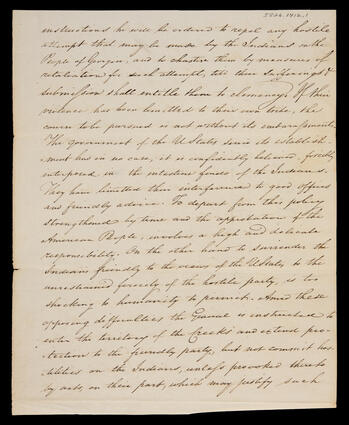 3826.1912.1
instructions he will be ordered to repel any hostile
attempt that may be made by the Indians on the
People of Georgia, and to chastise them by measures of
retaliation for such attempt, till their sufferings &
submission shall entitle them to clemency. If their
violence has been limited to their own tribe, the
course to be pursued is not without its embarrassment.
The government of the U States since its establish-
ment has in no case, it is confidently believed, forcibly
interposed in the intestine feuds of the Indians.
They have limited their interference to good offices
and friendly advice. To depart from this policy
strengthened by time and the approbation of the
American People, involves a high and delicate
responsibility. On the other hand to surrender the
Indians friendly to the views of the U States, to the
unrestrained ferocity of the hostile party, is too
shocking to humanity to permit. Amid these
opposing difficulties the General is instructed to
enter the territory of the Creeks and extend pro-
tection to the friendly party, but not commit hos-
tilities on the Indians, unless provoked thereto
by acts, on their part, which may justify such